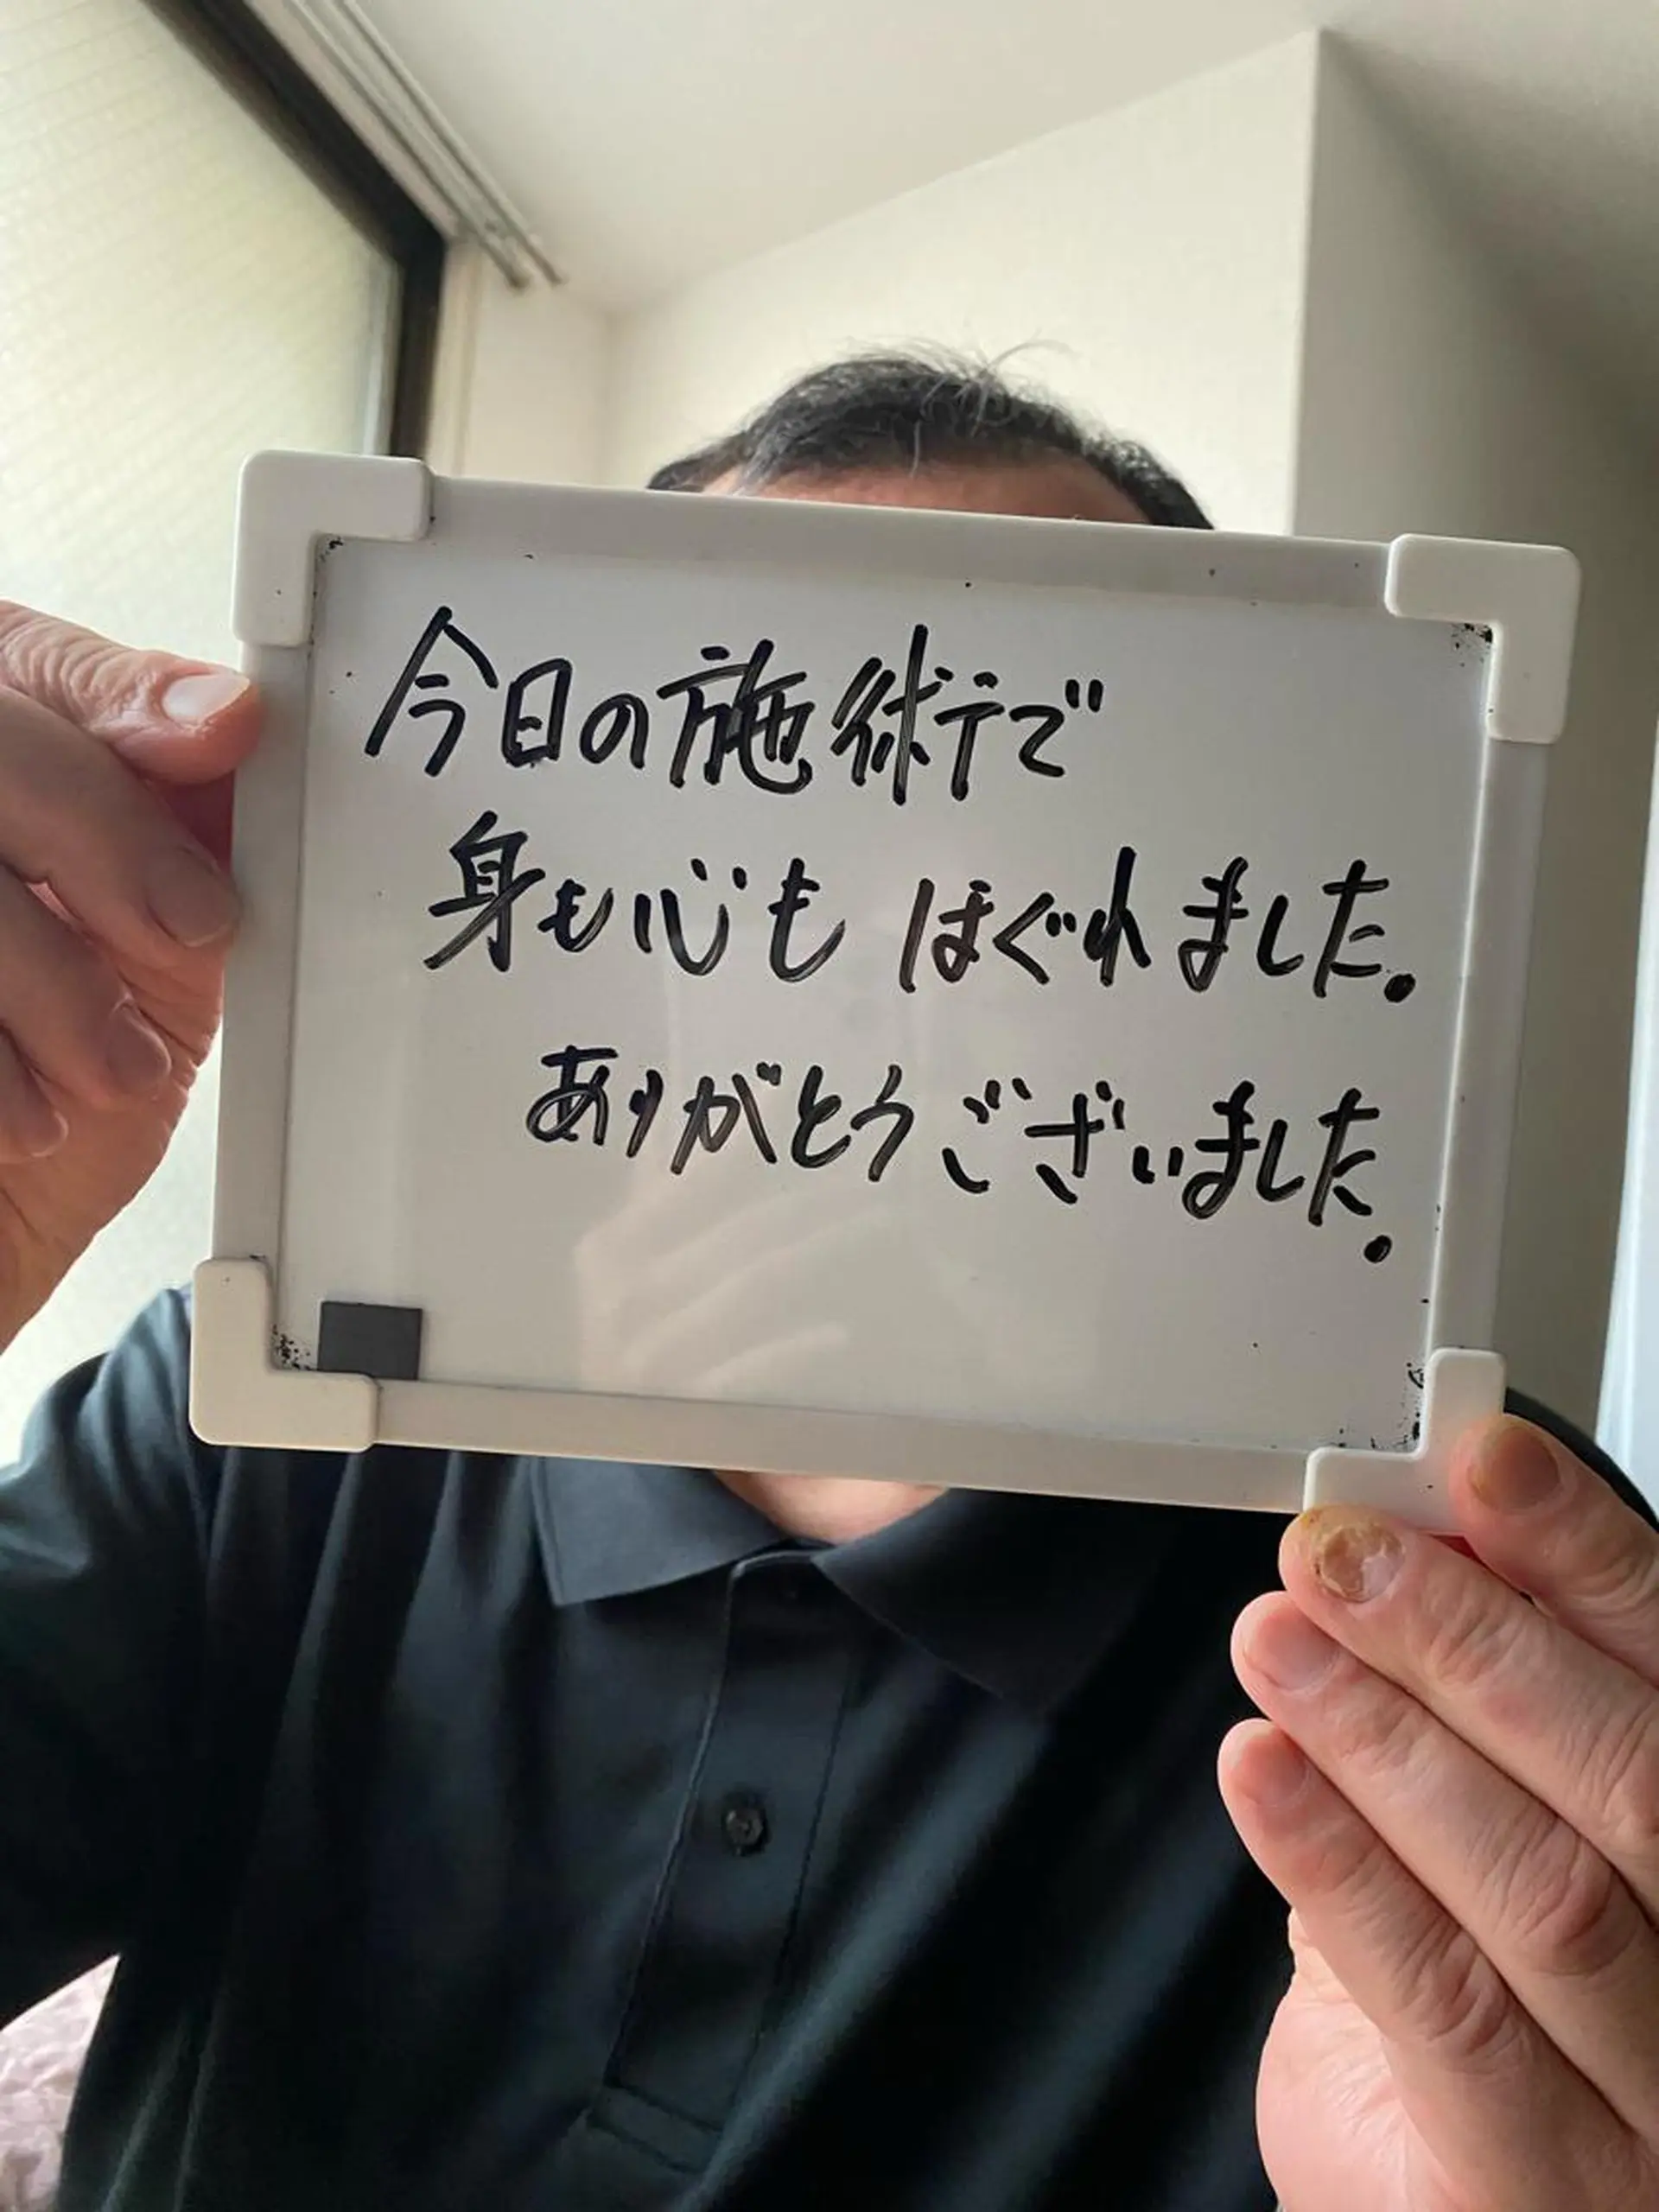 今日の施術で
身も心もほぐれました。
ありがとうございました。